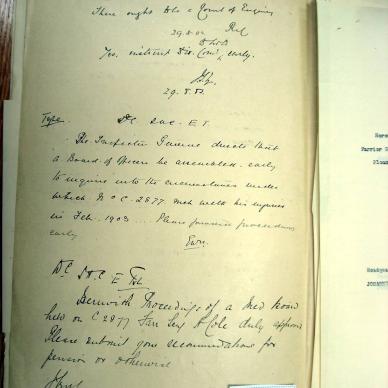 There ought to be a Court of Enquiry
29.8.03
Yes. instruct Dis. Com. early.
29.8.03.
Type. DC SAC. E.T.
The Inspector General directs that
a Board of Officers be assembled early
to inquire into the circumstances under
which No C 2877 met with his injuries
in Feb. 1903 ... Please forward proceedings
early
DC SAC E
Herewith Proceedings of a Med Board
held on C 2877 Farr Serg A Cole duly approved
Please submit your recommendations for
pension or otherwise
Farrier S
JOHANNES